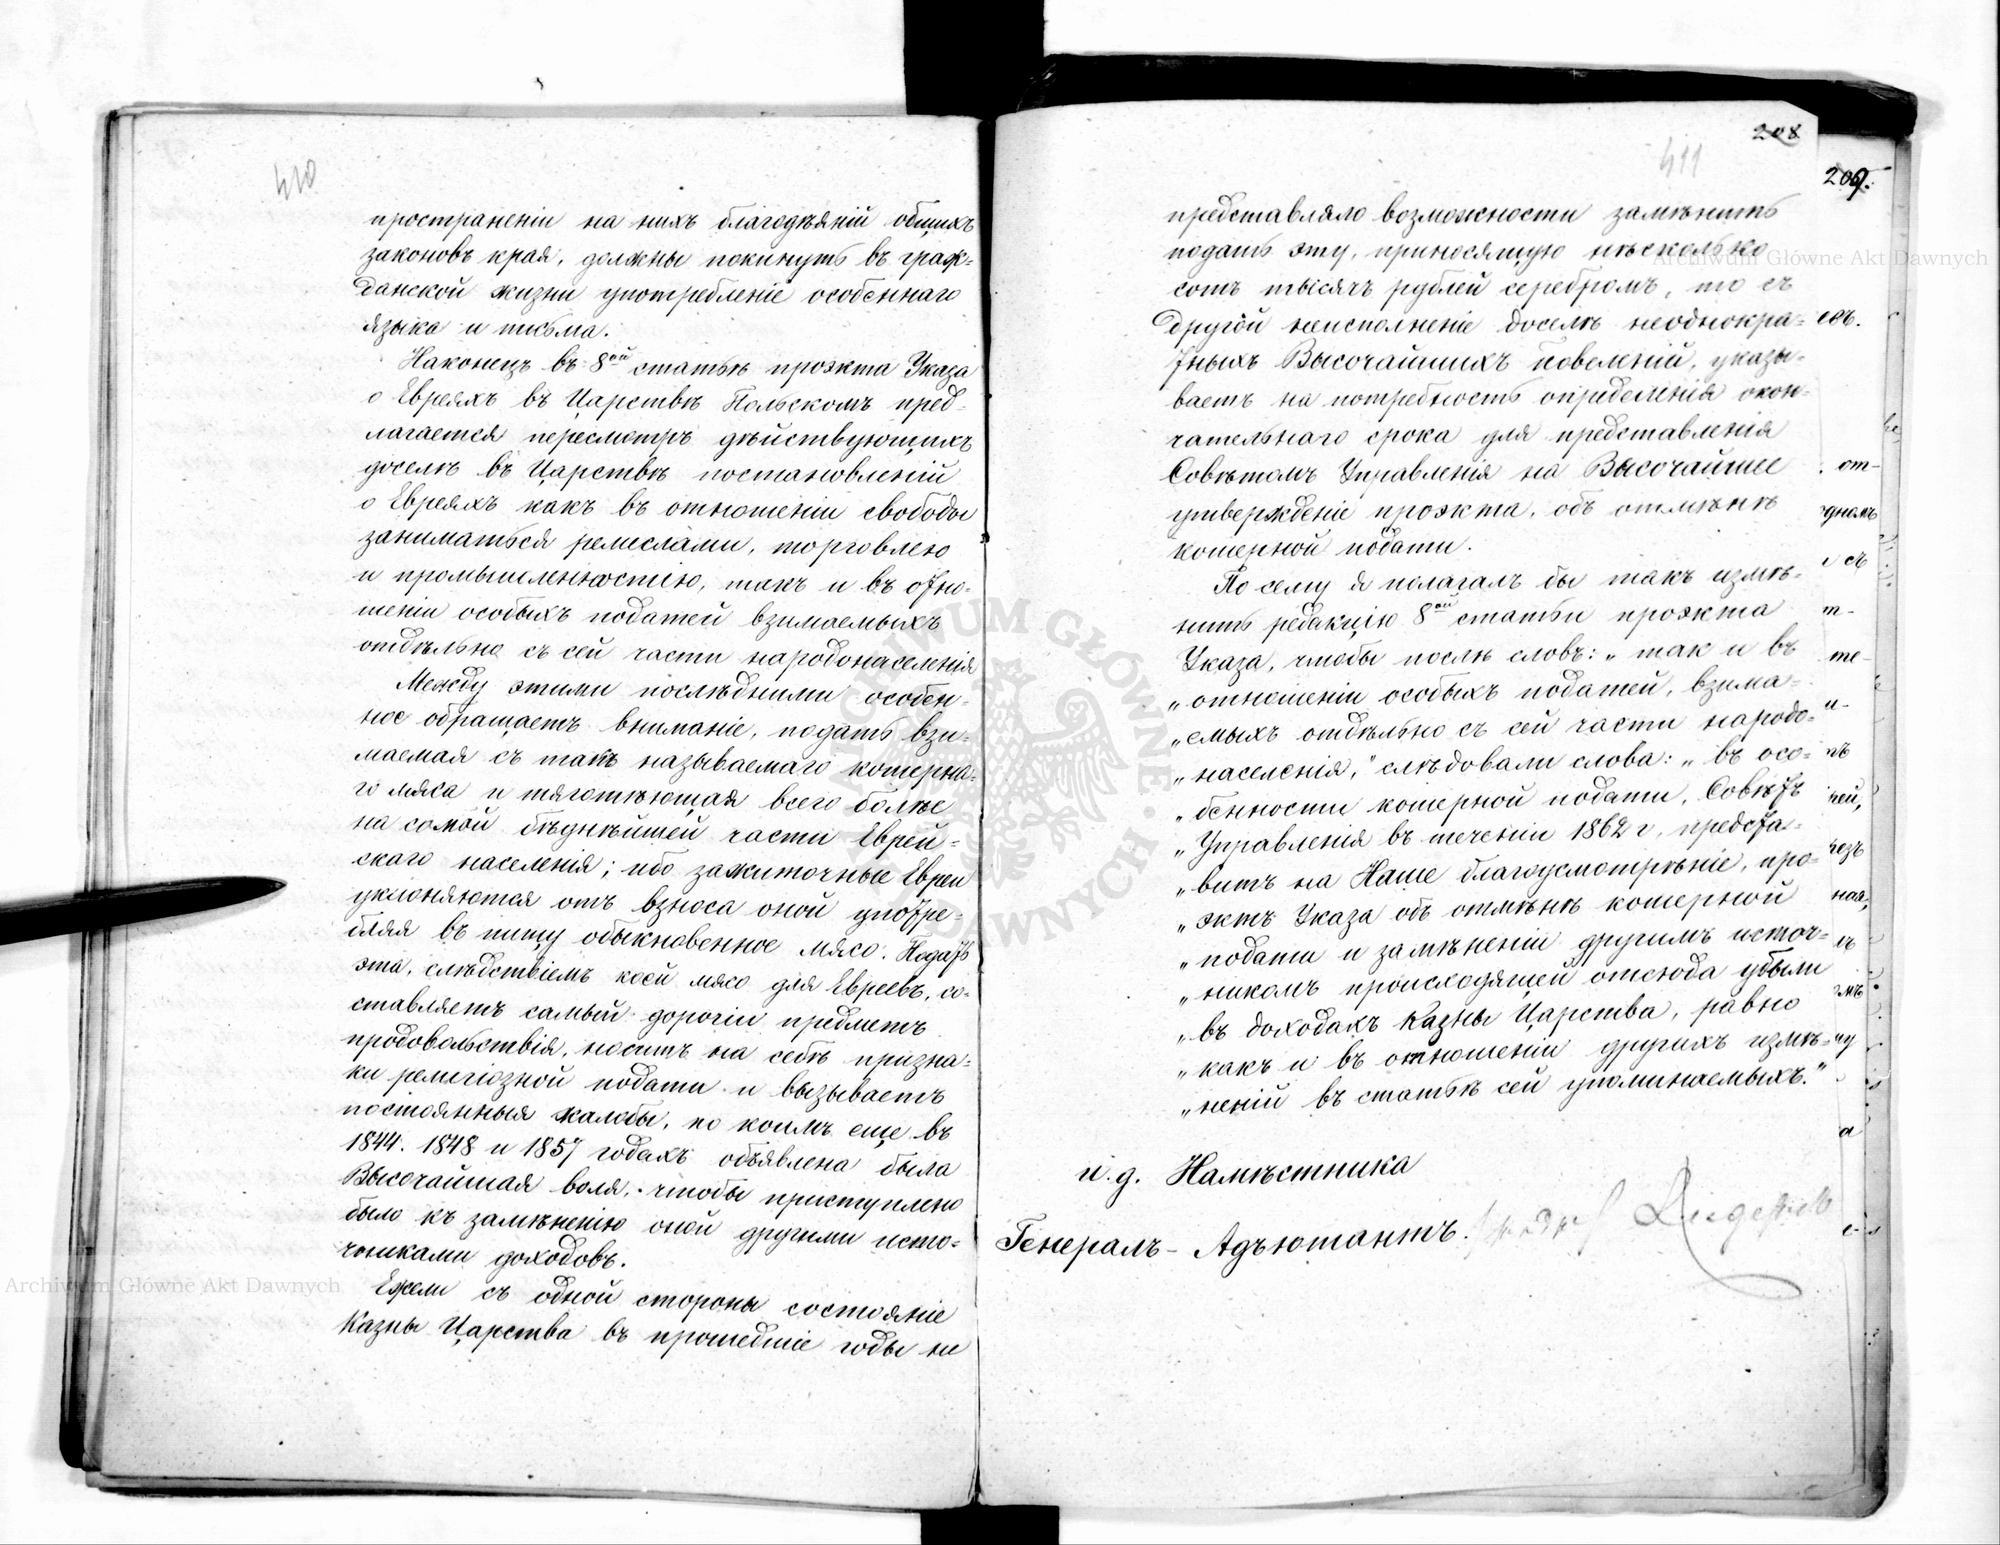 410
пространеніи на нихъ благодѣяній общихъ
законовъ края, должны покинуть въ граж-
данской жизни употребленіе особеннаго
языка и письма.
Наконецъ въ 8ой статьѣ проэкта Указа
о Евреяхъ въ Царствѣ Польскомъ пред-
лагается пересмотръ дѣйствующихъ
доселѣ въ Царствѣ постановленій
о Евреяхъ какъ въ отношеніи свободы
заниматься ремеслами, торговлею
и промышленностію, такъ и въ отно-
шеніи особыхъ податей взимаемыхъ
отдѣльно съ сей части народонаселенія
Между этими послѣдними особен-
ное обращаетъ вниманіе, подать взи-
маемая съ такъ называемаго кошерна-
го мяса и тяготѣющая всего болѣе
на самой бѣднѣйшей части Еврей-
скаго населенія; ибо зажиточные Евреи
уклоняются отъ взноса оной употре-
бляя въ пищу обыкновенное мясо. Подать
эта, слѣдствіемъ коей мясо для Евреевъ, со-
ставляетъ самый дорогіи предметъ
продовольствія, носитъ на себѣ призна-
ки религіозной подати и вызываетъ
постоянныя жалобы, по коимъ еще въ
1844. 1848 и 1857 годахъ объявлена была
Высочайшая воля, чтобы приступлено
было къ замѣненію оной другими исто-
чниками доходовъ.
Ежели съ одной стороны состояніе
Казны Царства въ прошедшіе годы не
208
411
209.
представляло возможности замѣнить
подать эту, приносящую нѣсколько
сотъ тысячъ рублей серебромъ, то съ
другой неисполненіе доселѣ неоднокра-
тныхъ Высочайшихъ повеленій, указы-
ваетъ на потребность опредѣленія окон-
чательнаго срока для представленія
Совѣтомъ Управленія на Высочайшее
утвержденіе проэкта, объ отмѣнѣ
кошерной подати.
По сему я полагалъ бы такъ измѣ-
нить редакцію 8ой статьи проэкта
Указа, чтобы послѣ словъ: „так и въ
„отношеніи особыхъ податей, взима-
„емыхъ отдѣльно съ сей части народо-
„населенія," слѣдовали слова: „въ осо-
„бенности кошерной подати, Совѣтъ
„Управленія въ теченіи 1862 г, предста-
„витъ на Наше благоусмотрѣніе, про-
„эктъ Указа объ отмѣнѣ кошерной
„подати и замѣненіи другимъ источ-
„никомъ происходящей отсюда убыли
„въ доходахъ Казны Царства, равно
„какъ и въ отношеніи другихъ измѣ-
„неній въ статьѣ сей упоминаемыхъ."
и. д. Намѣстника
Генералъ-Адъютантъ. Лидерсъ
Archiwum Główne Akt Dawnych
Archiwum Główne Akt Dawnych
ARCHIWUM GŁÓWNE AKT DAWNYCH